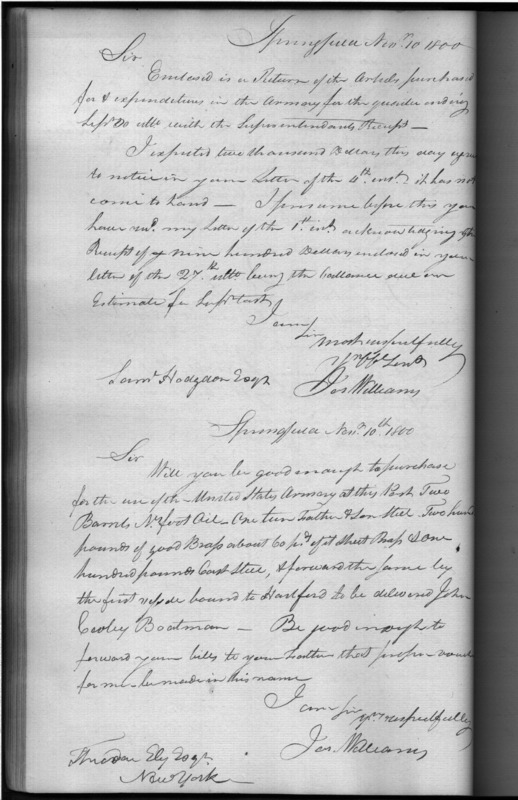 Springfield Novr. 10 1800
Sir
Enclosed is a Return of the Articles purchased
for & expenditures in the Armory for the quarter ending
Septr. 30 ulto with the Superintendants Receipt —
I expected two thousand Dollars this day agree
to notice in your Letter of the 4th. inst. it has not
come to hand — I presume before this you
have recd. my Letter of the 1st. inst. acknowledging the
Receipt of nine hundred Dollars enclosed in your
letter of the 27th. ulto being the ballance due on
Estimate for Septr last
I am
Sir
most respectfully
Yr Obt Servt
Jos Williams
Saml Hodgdon Esqr
Springfield Novr. 10th. 1800
Sir
Will you be good enough to purchase
for the use of the United States Armory at this Post Two
Barrels Oil — One tun & Steel Two hund
pounds of good Brass about 60 ps. of it Sheet Brass & One
hundred pounds Cast Steel, & forward the same by
the first vessel bound to Hartford to be delivered John
Cooley Boatman — Be good enough to
forward your bills to your Father that proper vouch
for me be made in his name
I am Sir
yrs respectfully
Jos Williams
Theodore Ely Esqr.
New York